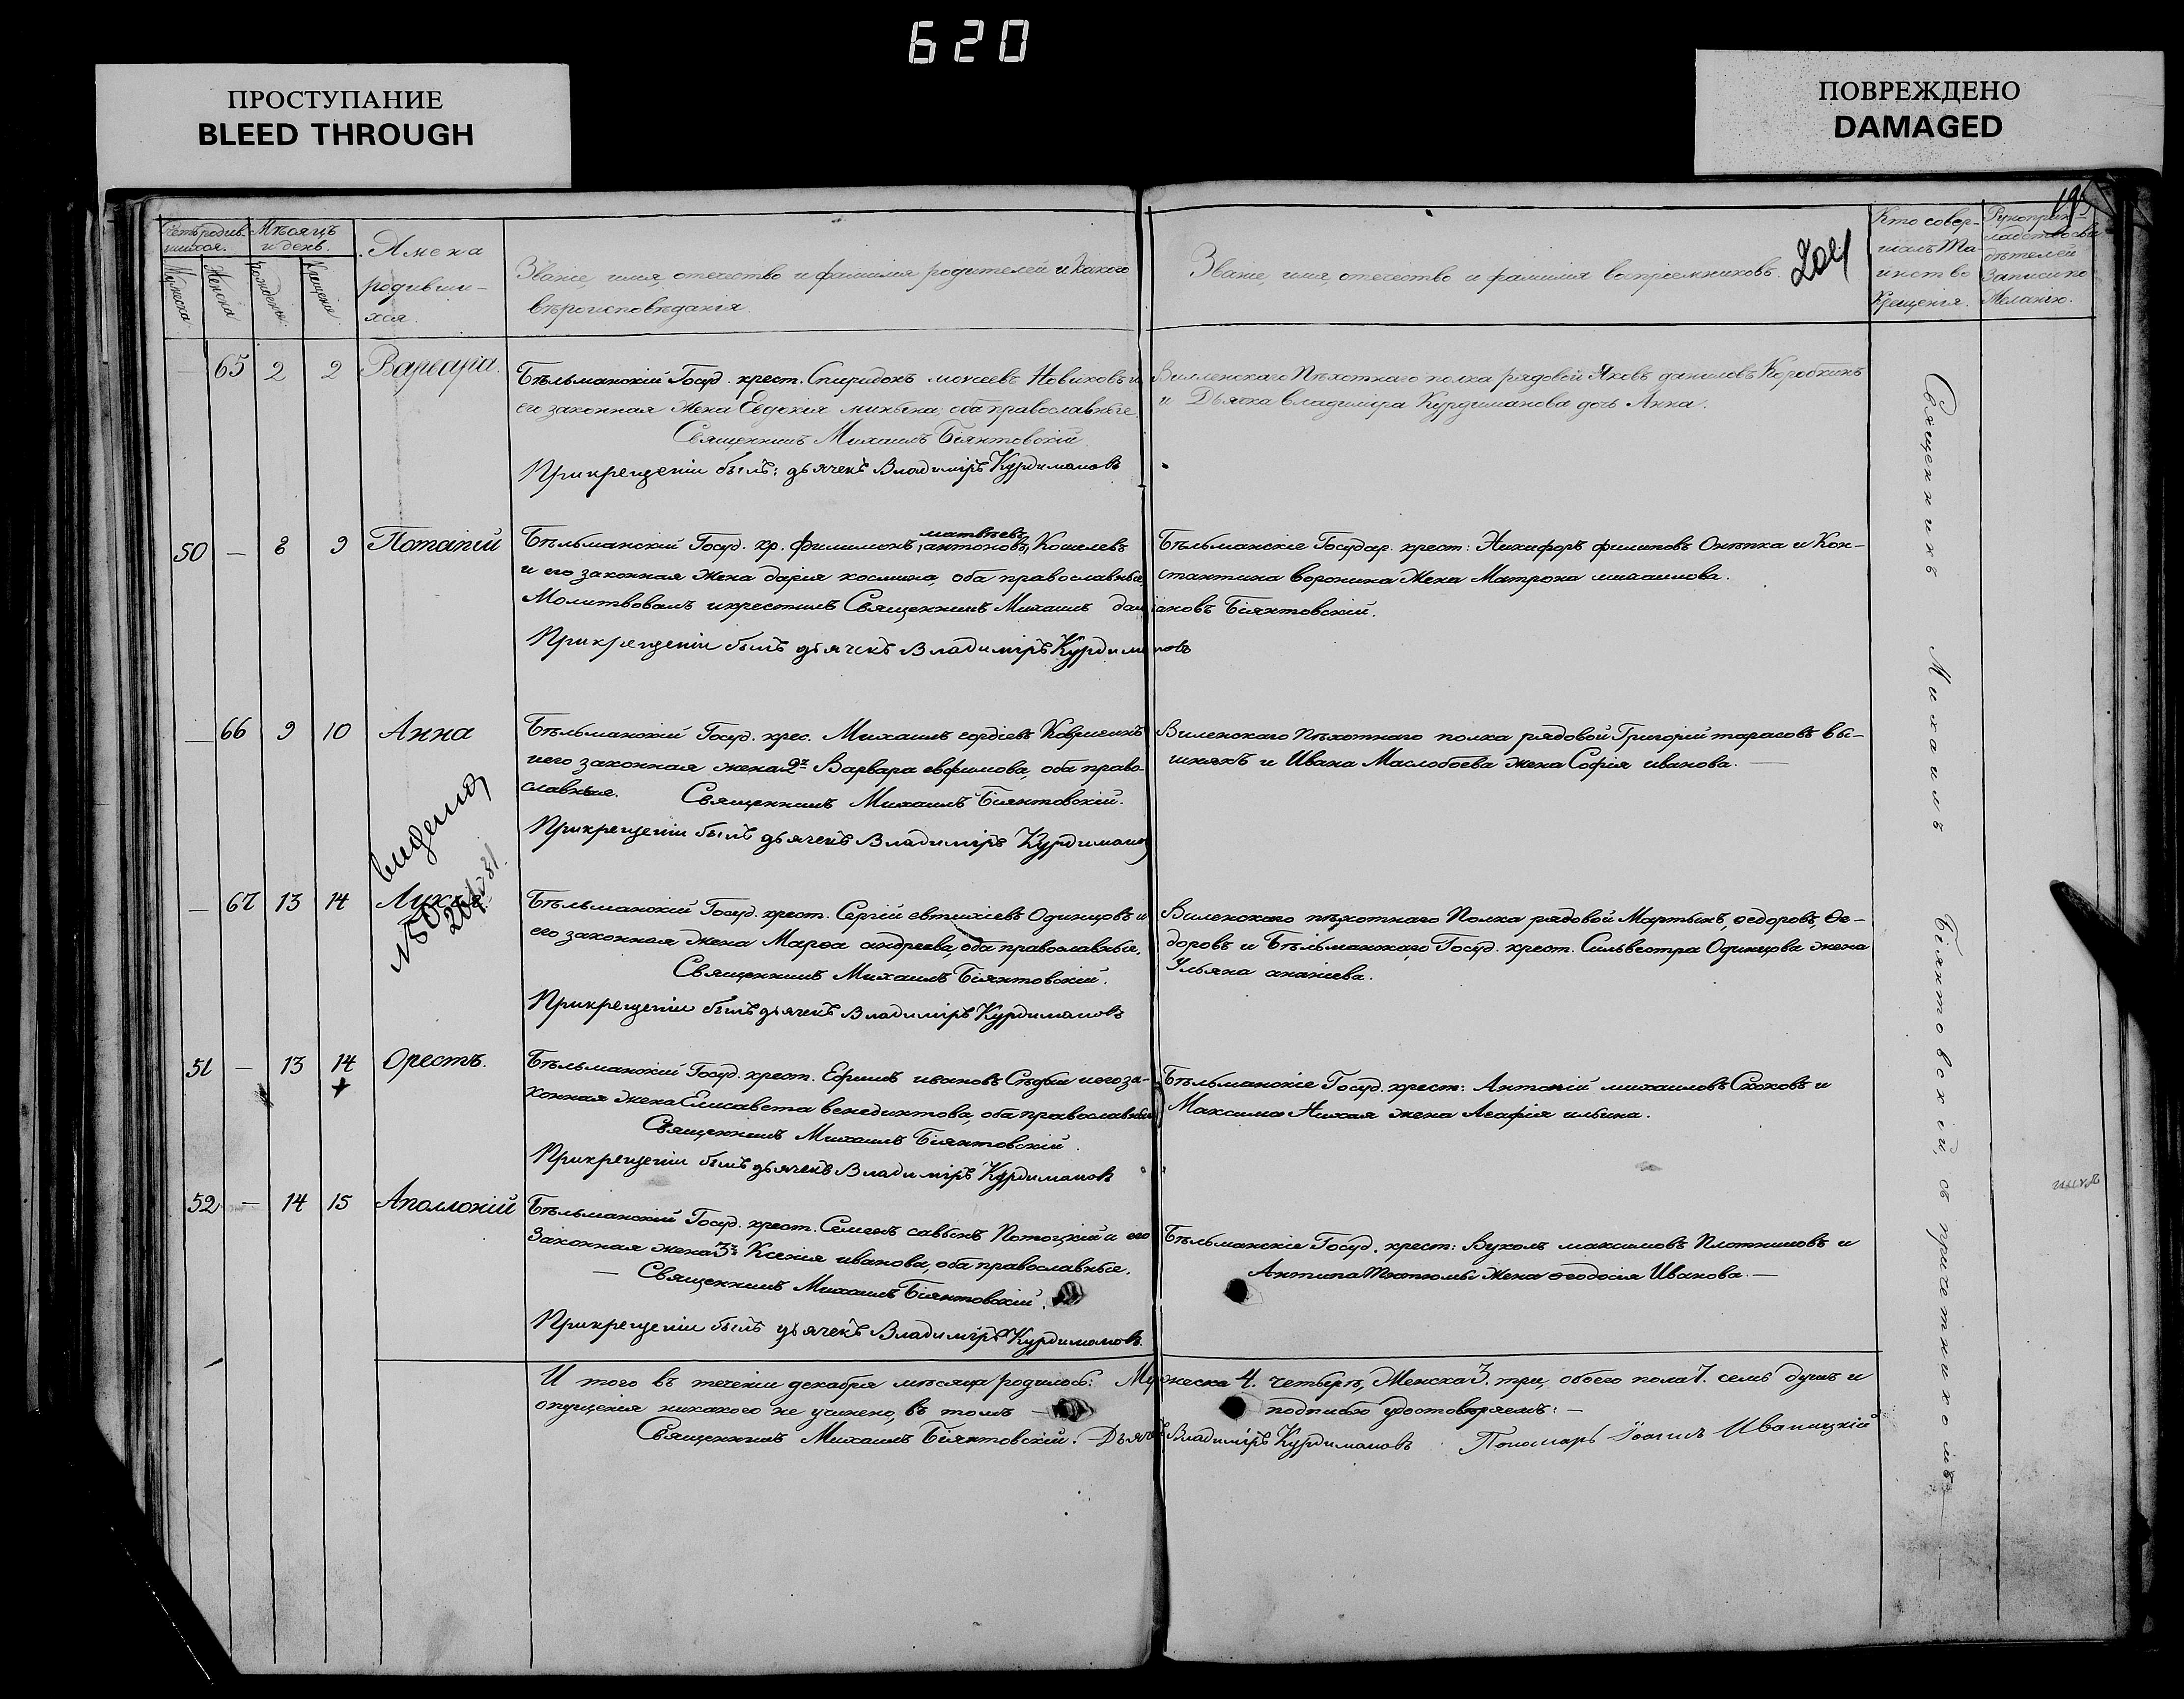 620
ПРОСТУПАНИЕ
BLEED THROUGH
ПОВРЕЖДЕНО
DAMAGED
195
204
Счетъ родив-
шихся.
Мужеска
Женска
Мѣсяцъ
и день.
Рожденія.
Крещенія
Имена
родивши-
хся.
Званіе, имя, отечество и фамилія родителей и какого
вѣроисповѣданія.
Званіе, имя, отечество и фамилія воспріемниковъ.
Кто совер-
шалъ Та-
инство
Крещенія.
Рукоприк-
ладство сви
дѣтелей
Записи по
Желанію.
65 2 2 Варвара.
Бѣльманскій Госуд. крест. Спиридонъ моисеевъ Новиковъ и
его законная жена Евдокія минына, оба православные.
Священникъ Михаилъ Біянтовскій
При крещеніи былъ: дьячекъ Владиміръ Курдимановъ
Вилленскаго Пѣхотнаго полка рядовой Яковъ даниловъ Коробкинъ
и Дьячка владиміра Курдиманова дочь Анна.
50 — 8 9 Потапій
Бѣльманскій Госуд. кр. филимонъ (антоновъ) матвѣевъ Кошелевъ
и его законная жена дарія космина, оба православные,
Молитвовалъ и крестилъ Священникъ Михаилъ даміановъ Біянтовскій.
При крещеніи былъ дьячекъ Владиміръ Курдимановъ
Бѣльманскіе Государ. крест: Никифоръ филиповъ Онѣпка и Кон-
стантина воронина жена Матрона михаилова.
— 66 9 10 Анна
Бѣльманскій Госуд. крес. Михаилъ гордіевъ Ковригинъ
и его законная жена 2я Варвара евфимова, оба право-
славные. Священникъ Михаилъ Біянтовскій.
При крещеніи былъ дьячекъ Владиміръ Курдимановъ
Виленскаго Пѣхотнаго полка рядовой Григорій тарасовъ вы-
шнякъ и Ивана Маслобоева жена Софія иванова. —
— 67 13 14
Бѣльманскій Госуд. крест. Сергій евтихіевъ Одинцовъ и
его законная жена Марѳа андреева, оба православные.
Священникъ Михаилъ Біянтовскій.
При крещеніи былъ дьячекъ Владиміръ Курдимановъ
Виленскаго пѣхотнаго Полка рядовой Мартынъ, ѳедоровъ, Ѳе-
доровъ и Бѣльманскаго Госуд. крест. Сильвестра Одинцова жена
Ульяна ананіева.
51 — 13 14 Орестъ.
Бѣльманскій Госуд. крест. Ефимъ ивановъ и его за-
конная жена Елисавета венедиктова, оба православные
Священникъ Михаилъ Біянтовскій.
При крещеніи былъ дьячекъ Владиміръ Курдимановъ
Бѣльманскіе Госуд. крест: Антоній михаиловъ и
Максима жена Агафія ильина.
52 — 14 15 Аполлоній
Бѣльманскій Госуд. крест. Семенъ савынъ Потоцкій и его
Законная жена 3я Ксенія иванова, оба православные.
— Священникъ Михаилъ Біянтовскій.
При крещеніи былъ дьячекъ Владиміръ Курдимановъ.
Бѣльманскіе Госуд. крест: Вуколъ максимовъ Плотниковъ и
Антипа жена ѳеодосія Иванова. —
И того въ теченіи декабря мѣсяца родилось: Мужеска 4. четыре, Женска 3. три, обоего пола 7. семь душъ и
опущенія никакого не учинено, въ томъ — подписью удостовѣряемъ: —
Священникъ Михаилъ Біянтовскій. Дьячекъ Владиміръ Курдимановъ Пономарь Іоаннъ Иваницкій
Священникъ Михаилъ Біянтовскій, съ причетникомъ. —